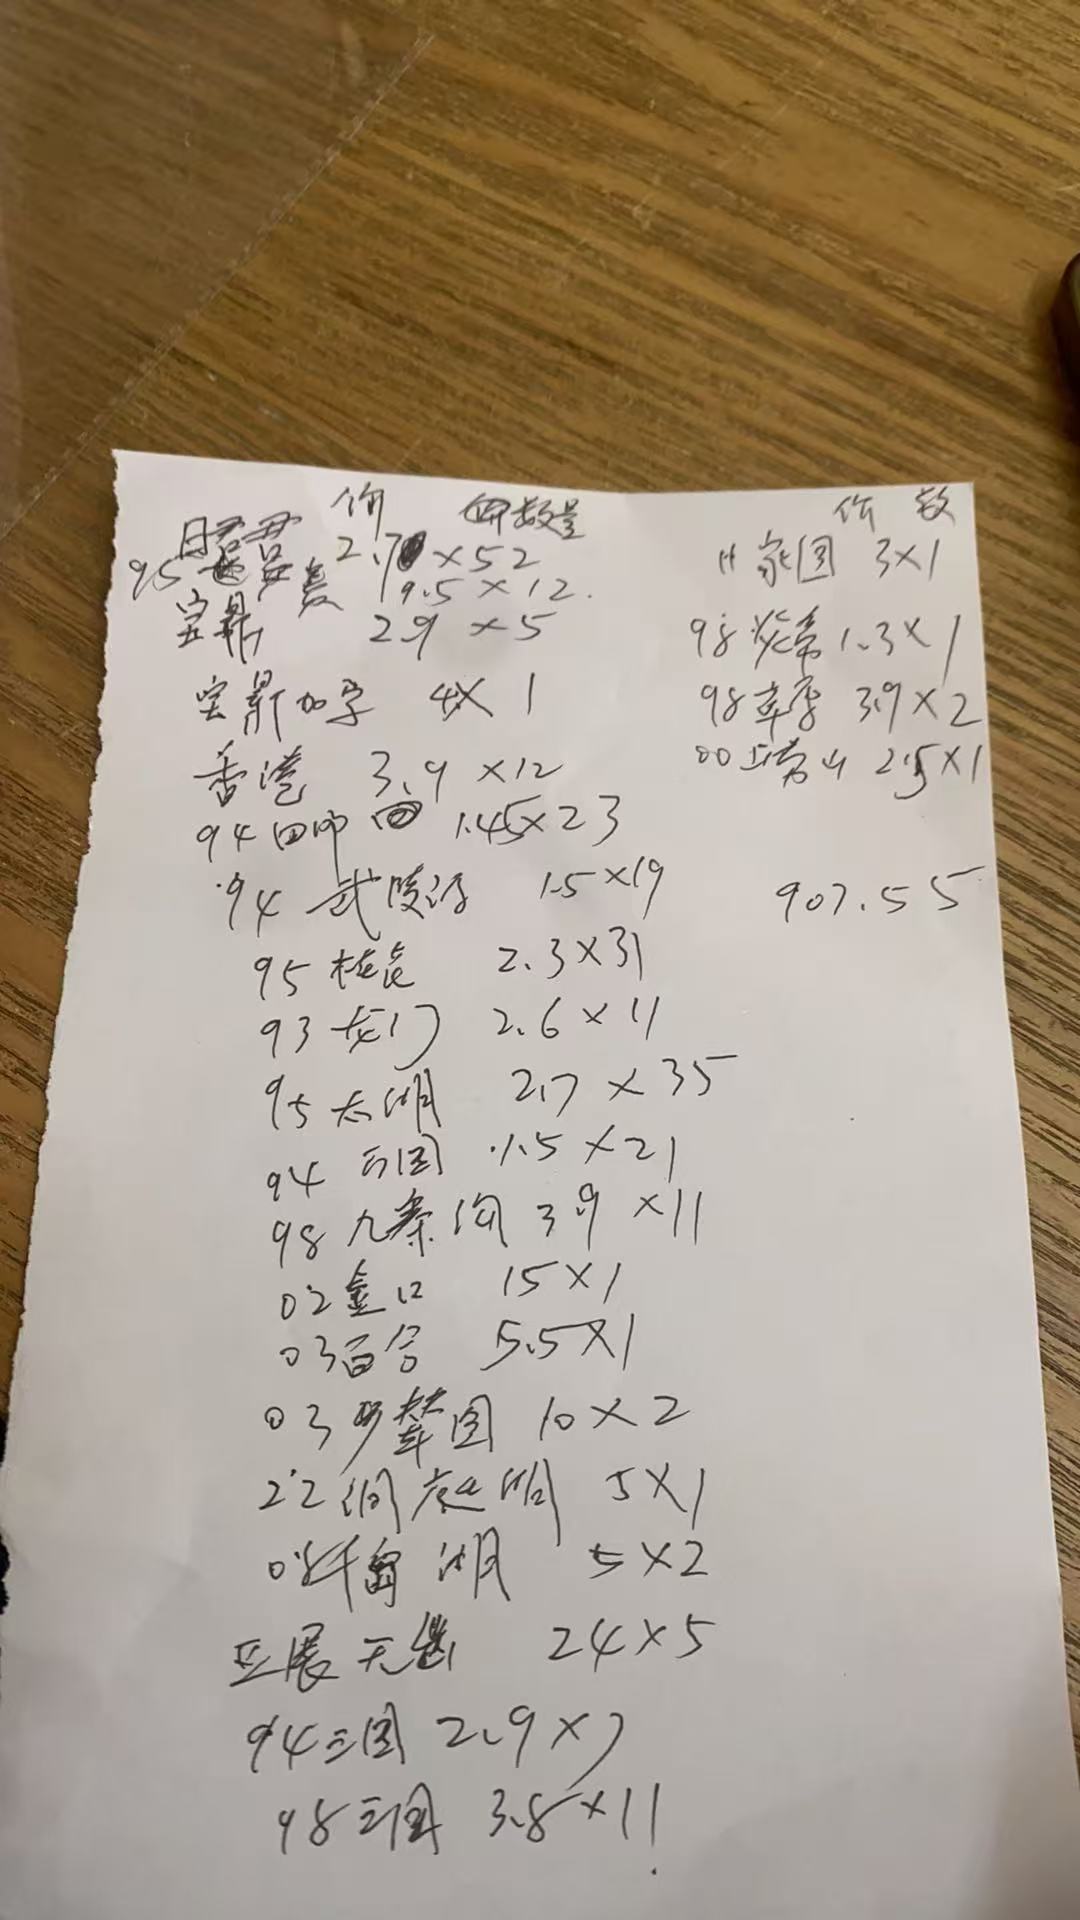 价 数量
昭君 2.7 × 52
95 9.5 × 12.
宝鼎 2.9 × 5
宝鼎加字 4× 1
香港 3.9 ×12
94 四 1.45×23
94 武陵源 1.5×19
95 桂花 2.3×31
93 龙门 2.6 × 11
95 太湖 2.7 × 35
94 三国 1.5×21
98 九寨沟 3.9 ×11
02 壶口 15×1
03百合 5.5×1
03步辇图 10×2
22洞庭湖 5×1
08千岛湖 5×2
亚展无齿 24×5
94三国 2.9×7
98三国 3.8×11
价 数
11 家园 3×1
98 1.3×1
98 3.9×2
00 2.5×1
907.55